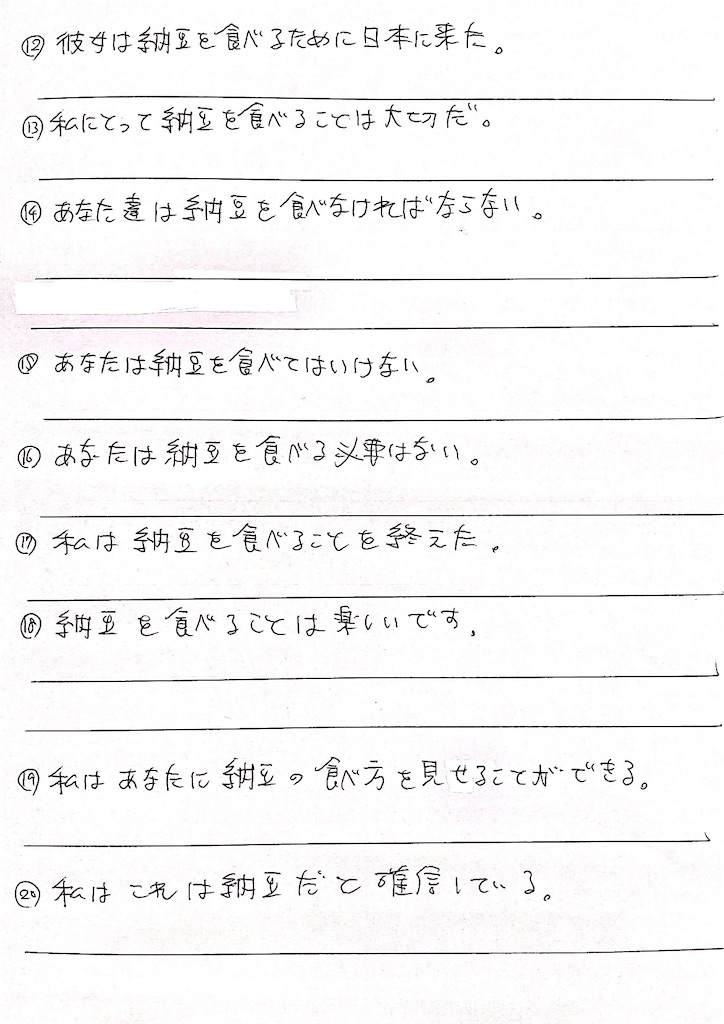 ⑫ 彼女は納豆を食べるために日本に来た。
⑬ 私にとって納豆を食べることは大切だ。
⑭ あなた達は納豆を食べなければならない。
⑮ あなたは納豆を食べてはいけない。
⑯ あなたは納豆を食べる必要はない。
⑰ 私は納豆を食べることを終えた。
⑱ 納豆を食べることは楽しいです。
⑲ 私はあなたに納豆の食べ方を見せることができる。
⑳ 私はこれは納豆だと確信している。